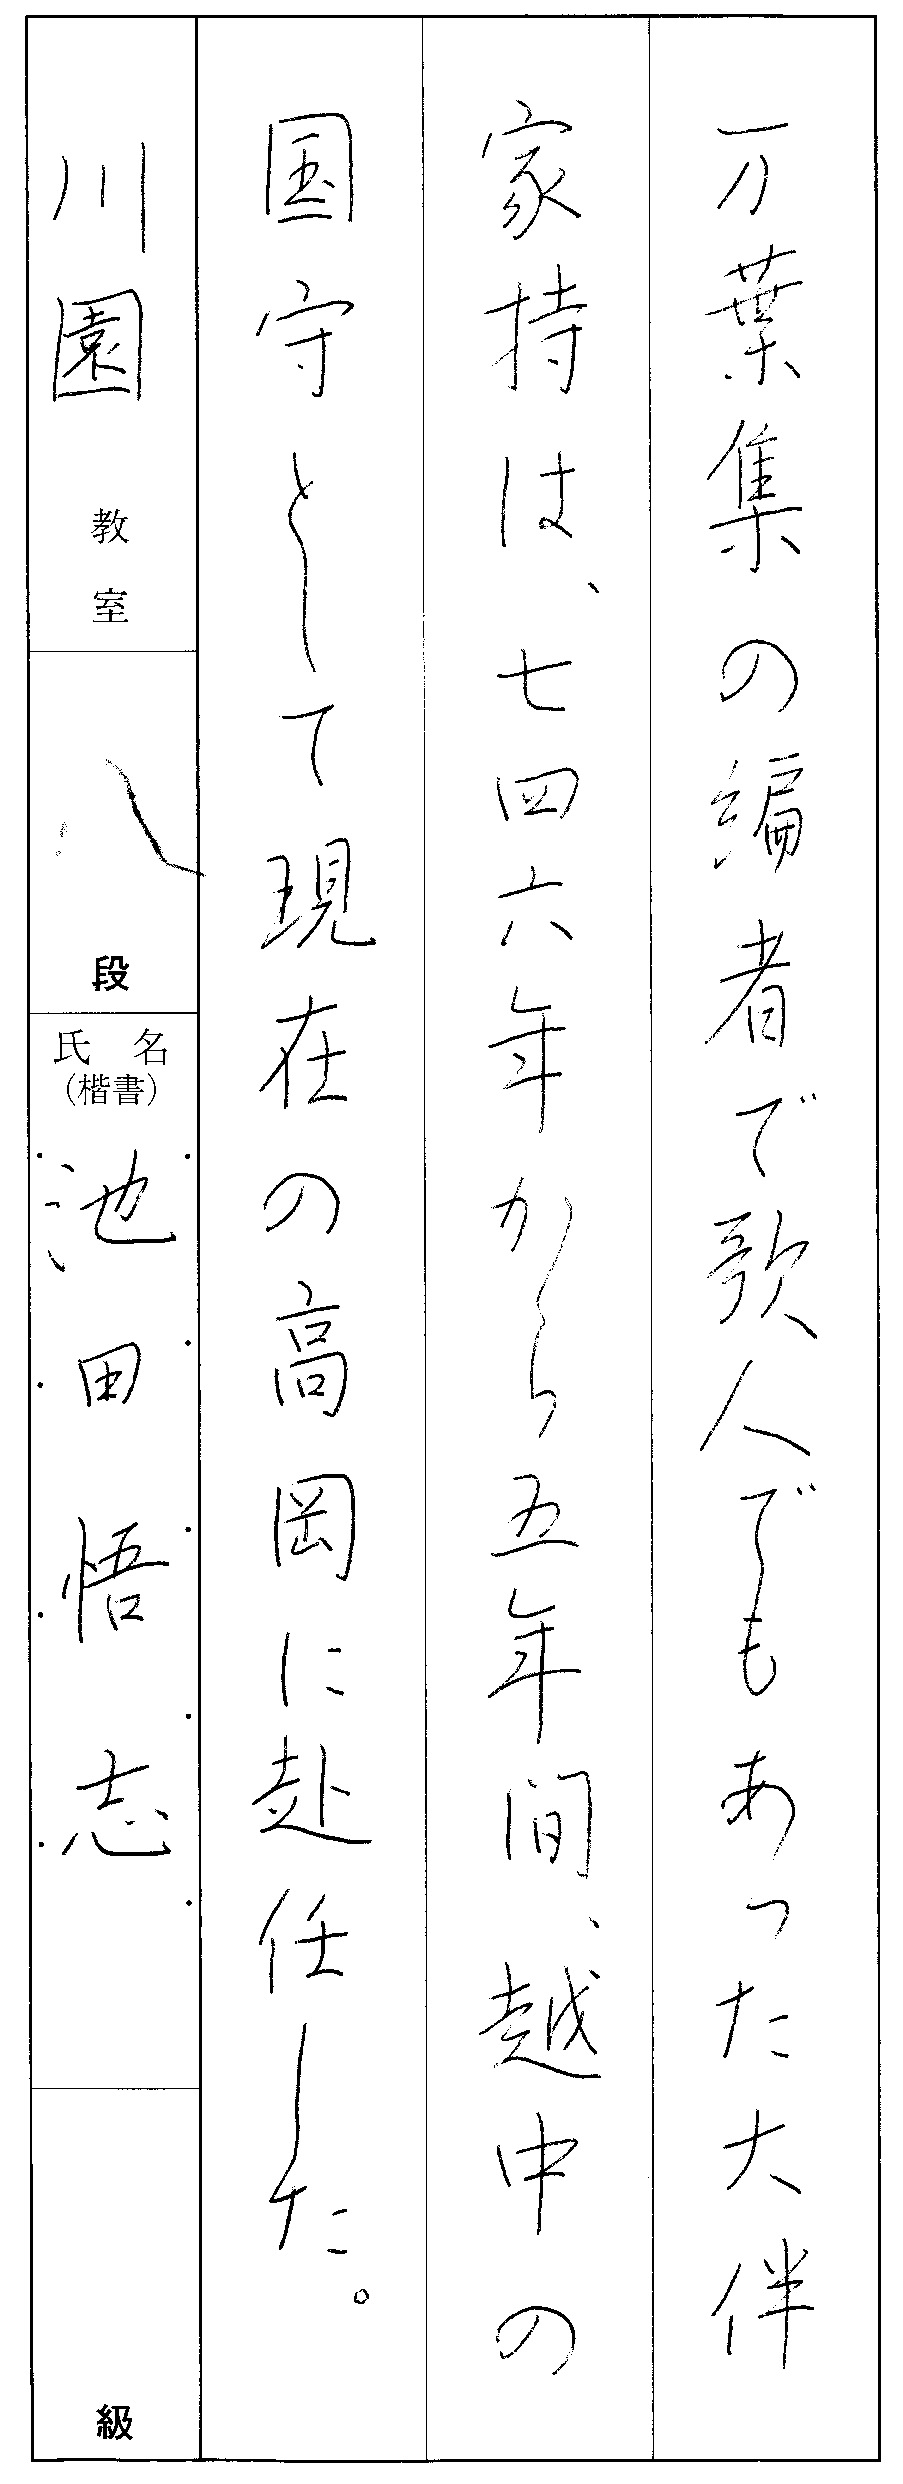 万葉集の編者で歌人でもあった大伴
家持は、七四六年から五年間、越中の
国守として現在の高岡に赴任した。
川園教室
八段
氏名
(楷書)
池田悟志
級